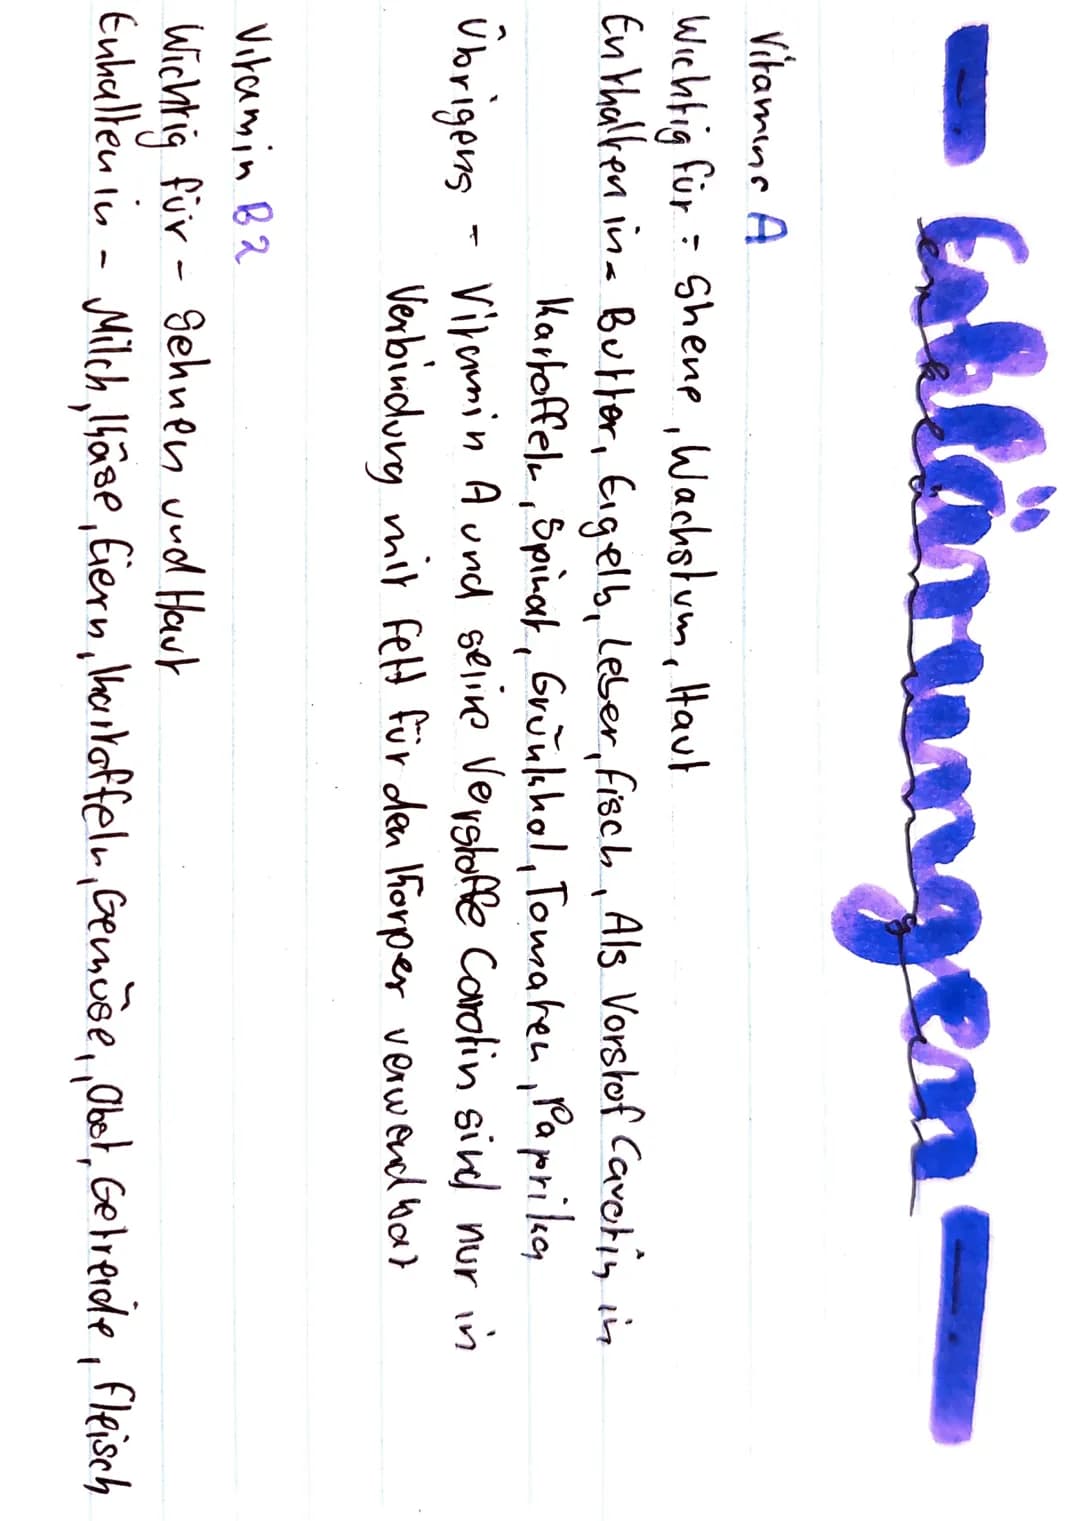 Erklärungen
Vitamine A
Wichtig für - Shene, Wachstum, Haut
Enthalten in - Butter, Eigelb, Leber, Fisch, Als Vorstof Carotin in
Kartoffeln, Spinat, Grünkhol, Tomaten, Paprika
Übrigens - Vitamin A und seine Verstoffe Carotin sind nur in
Verbindung mit Fett für den Körper verwendbar
Vitamin B2
Wichtig für - Sehnen und Haut
Enhalten in - Milch, Käse, Eiern, Kartoffeln, Gemüse, Obst, Getreide, Fleisch